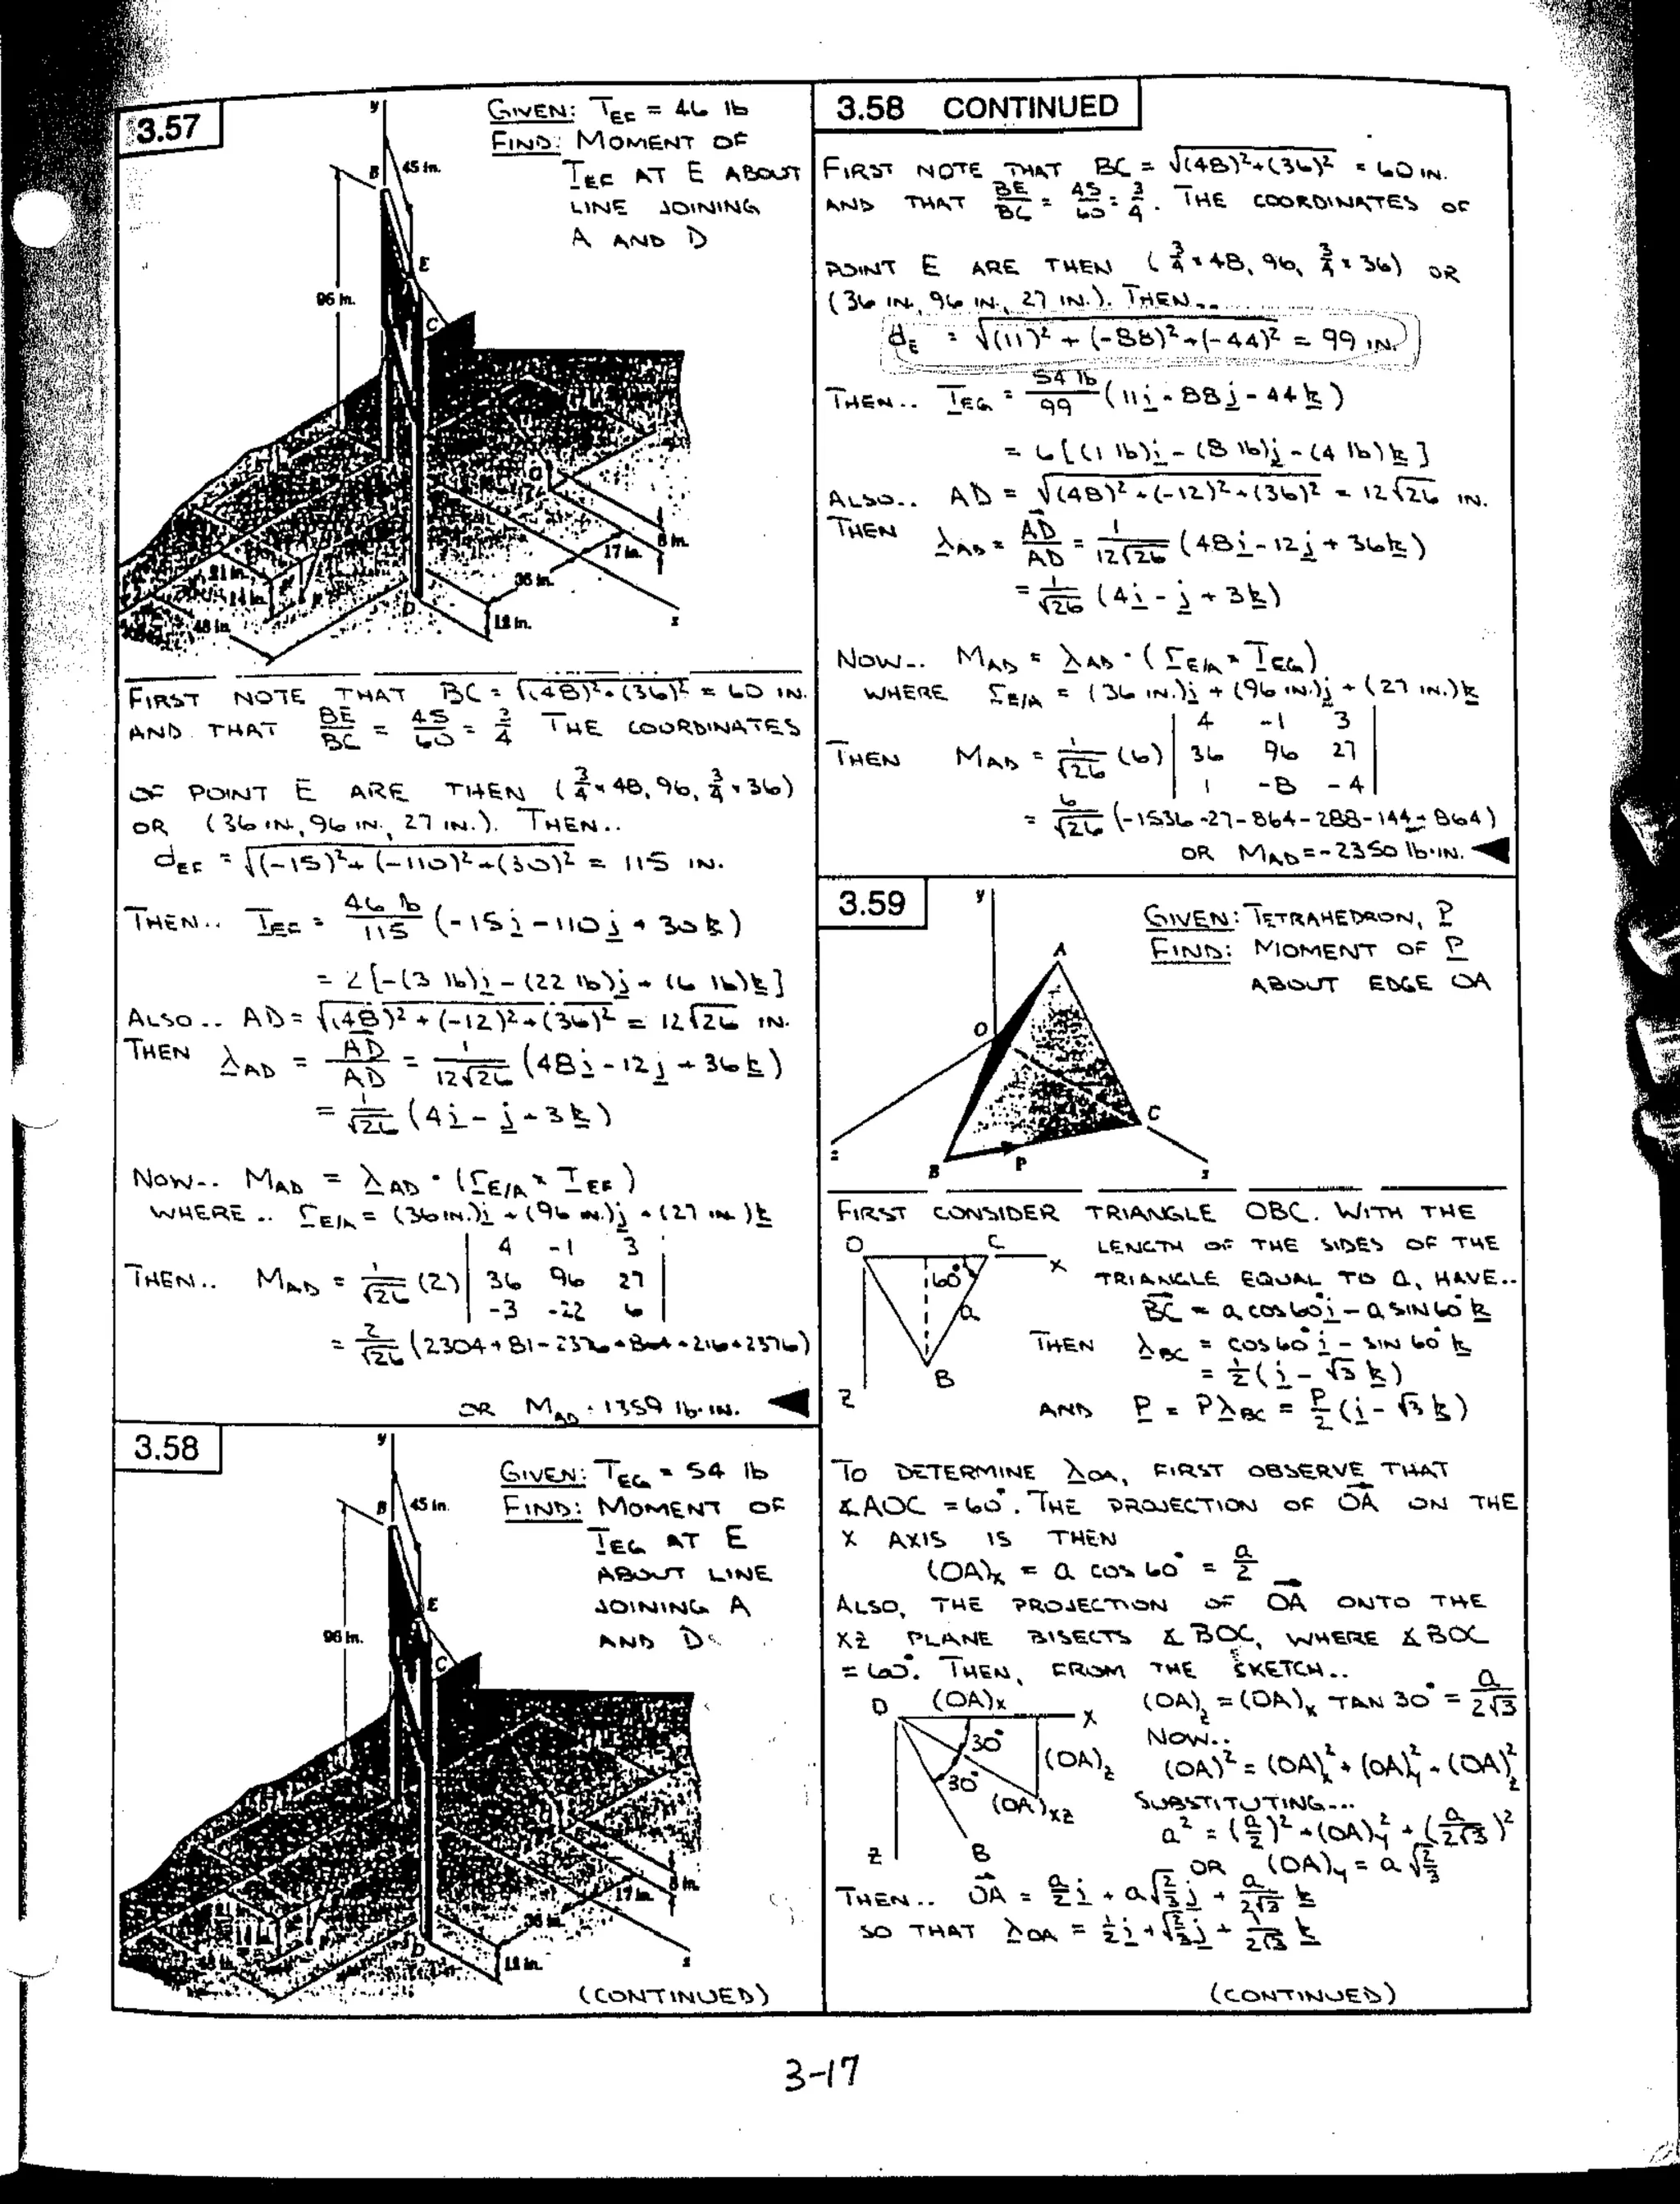 3.57
GIVEN: T_EF = 46 lb
FIND: MOMENT OF
T_EF AT E ABOUT
LINE JOINING
A AND D
y
B
45 in.
E
96 in.
C
8 in.
17 in.
36 in.
D
12 in.
x
48 in.
FIRST NOTE THAT BC = √(48)²+(36)² = 60 IN.
AND THAT BE/BC = 45/60 = 3/4 THE COORDINATES
OF POINT E ARE THEN (3/4 × 48, 96, 3/4 × 36)
OR (36 IN., 96 IN., 27 IN.). THEN..
d_EF = √(-15)²+(-110)²+(30)² = 115 IN.
THEN.. T_EF = 46 lb/115 (-15i - 110j + 30k)
= 2[-(3 lb)i - (22 lb)j + (6 lb)k]
ALSO.. AD = √(48)²+(-12)²+(36)² = 12√26 IN.
THEN λ_AD = AD/AD = 1/12√26 (48i - 12j + 36k)
= 1/√26 (4i - j + 3k)
NOW.. M_AD = λ_AD · (r_E/A × T_EF)
WHERE .. r_E/A = (36 IN.)i + (96 IN.)j + (27 IN.)k
4 -1 3
THEN.. M_AD = 1/√26 (2) | 36 96 27 |
-3 -22 6
= 2/√26 (2304+81-2376+864+216+2376)
OR M_AD = 1359 lb·IN.
3.58
GIVEN: T_EG = 54 lb
FIND: MOMENT OF
T_EG AT E
ABOUT LINE
JOINING A
AND D
y
B
45 in.
E
96 in.
C
8 in.
17 in.
36 in.
D
12 in.
x
(CONTINUED)
3.58 CONTINUED
FIRST NOTE THAT BC = √(48)²+(36)² = 60 IN.
AND THAT BE/BC = 45/60 = 3/4. THE COORDINATES OF
POINT E ARE THEN (3/4 × 48, 96, 3/4 × 36) OR
(36 IN., 96 IN., 27 IN.). THEN..
d_E = √(11)² + (-88)² + (-44)² = 99 IN.
THEN.. T_EG = 54 lb/99 (11i - 88j - 44k)
= 6[(1 lb)i - (8 lb)j - (4 lb)k]
ALSO.. AD = √(48)²+(-12)²+(36)² = 12√26 IN.
THEN λ_AD = AD/AD = 1/12√26 (48i - 12j + 36k)
= 1/√26 (4i - j + 3k)
NOW.. M_AD = λ_AD · (r_E/A × T_EG)
WHERE r_E/A = (36 IN.)i + (96 IN.)j + (27 IN.)k
4 -1 3
THEN M_AD = 1/√26 (6) | 36 96 27 |
1 -8 -4
= 6/√26 (-1536-27-864-288-144+864)
OR M_AD = -2350 lb·IN.
3.59
GIVEN: TETRAHEDRON, P
FIND: MOMENT OF P
ABOUT EDGE OA
y
A
O
C
z
B
P
x
FIRST CONSIDER TRIANGLE OBC. WITH THE
LENGTH OF THE SIDES OF THE
TRIANGLE EQUAL TO a, HAVE..
O
C
x
60°
a
B
z
BC = a cos 60° i - a SIN 60° k
THEN λ_BC = cos 60° i - SIN 60° k
= 1/2 (i - √3 k)
AND P = Pλ_BC = P/2 (i - √3 k)
TO DETERMINE λ_OA, FIRST OBSERVE THAT
∡AOC = 60°. THE PROJECTION OF OA ON THE
X AXIS IS THEN
(OA)x = a cos 60° = a/2
ALSO, THE PROJECTION OF OA ONTO THE
XZ PLANE BISECTS ∡BOC, WHERE ∡BOC
= 60°. THEN, FROM THE SKETCH..
O
(OA)x
X
30°
(OA)z
30°
(OA)xz
Z
B
(OA)z = (OA)x TAN 30° = a/2√3
NOW..
(OA)² = (OA)x² + (OA)y² + (OA)z²
SUBSTITUTING...
a² = (a/2)² + (OA)y² + (a/2√3)²
OR (OA)y = a√2/3
THEN.. OA = a/2 i + a√2/3 j + a/2√3 k
SO THAT λ_OA = 1/2 i + √2/3 j + 1/2√3 k
(CONTINUED)
3-17